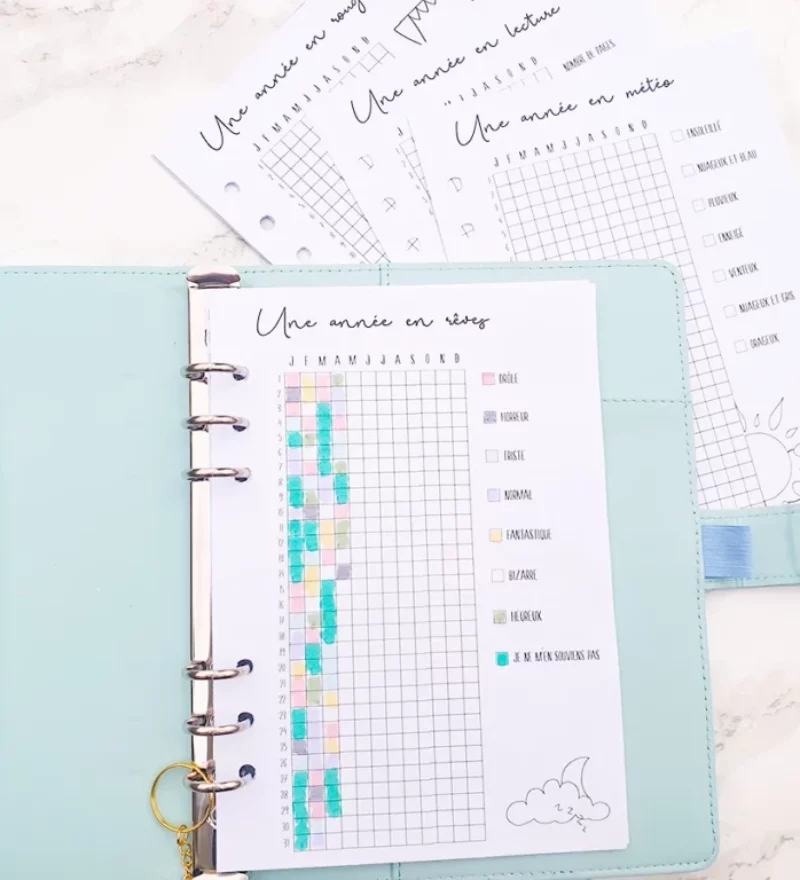 Une année en rouge
J F M A M J J A S O N D
Une année en lecture
J J A S O N D
NOMBRE DE PAGES
Une année en météo
J F M A M J J A S O N D
ENSOLEILLÉ
NUAGEUX ET BEAU
PLUVIEUX
ENNEIGÉ
VENTEUX
NUAGEUX ET GRIS
ORAGEUX
Une année en rêves
J F M A M J J A S O N D
DRÔLE
HORREUR
TRISTE
NORMAL
FANTASTIQUE
BIZARRE
HEUREUX
JE NE M'EN SOUVIENS PAS
1
2
3
4
5
6
7
8
9
10
11
12
13
14
15
16
17
18
19
20
21
22
23
24
25
26
27
28
29
30
31